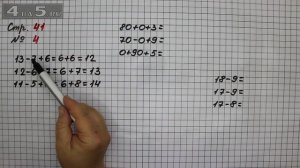 4apa5.ru
Стр. 41
№ 4
13-7+6=6+6=12
12-6+7=6+7=13
11-5+8=6+8=14
80+0+3=
70-0+9=
0+90+5=
18-9=
17-9=
17-8=